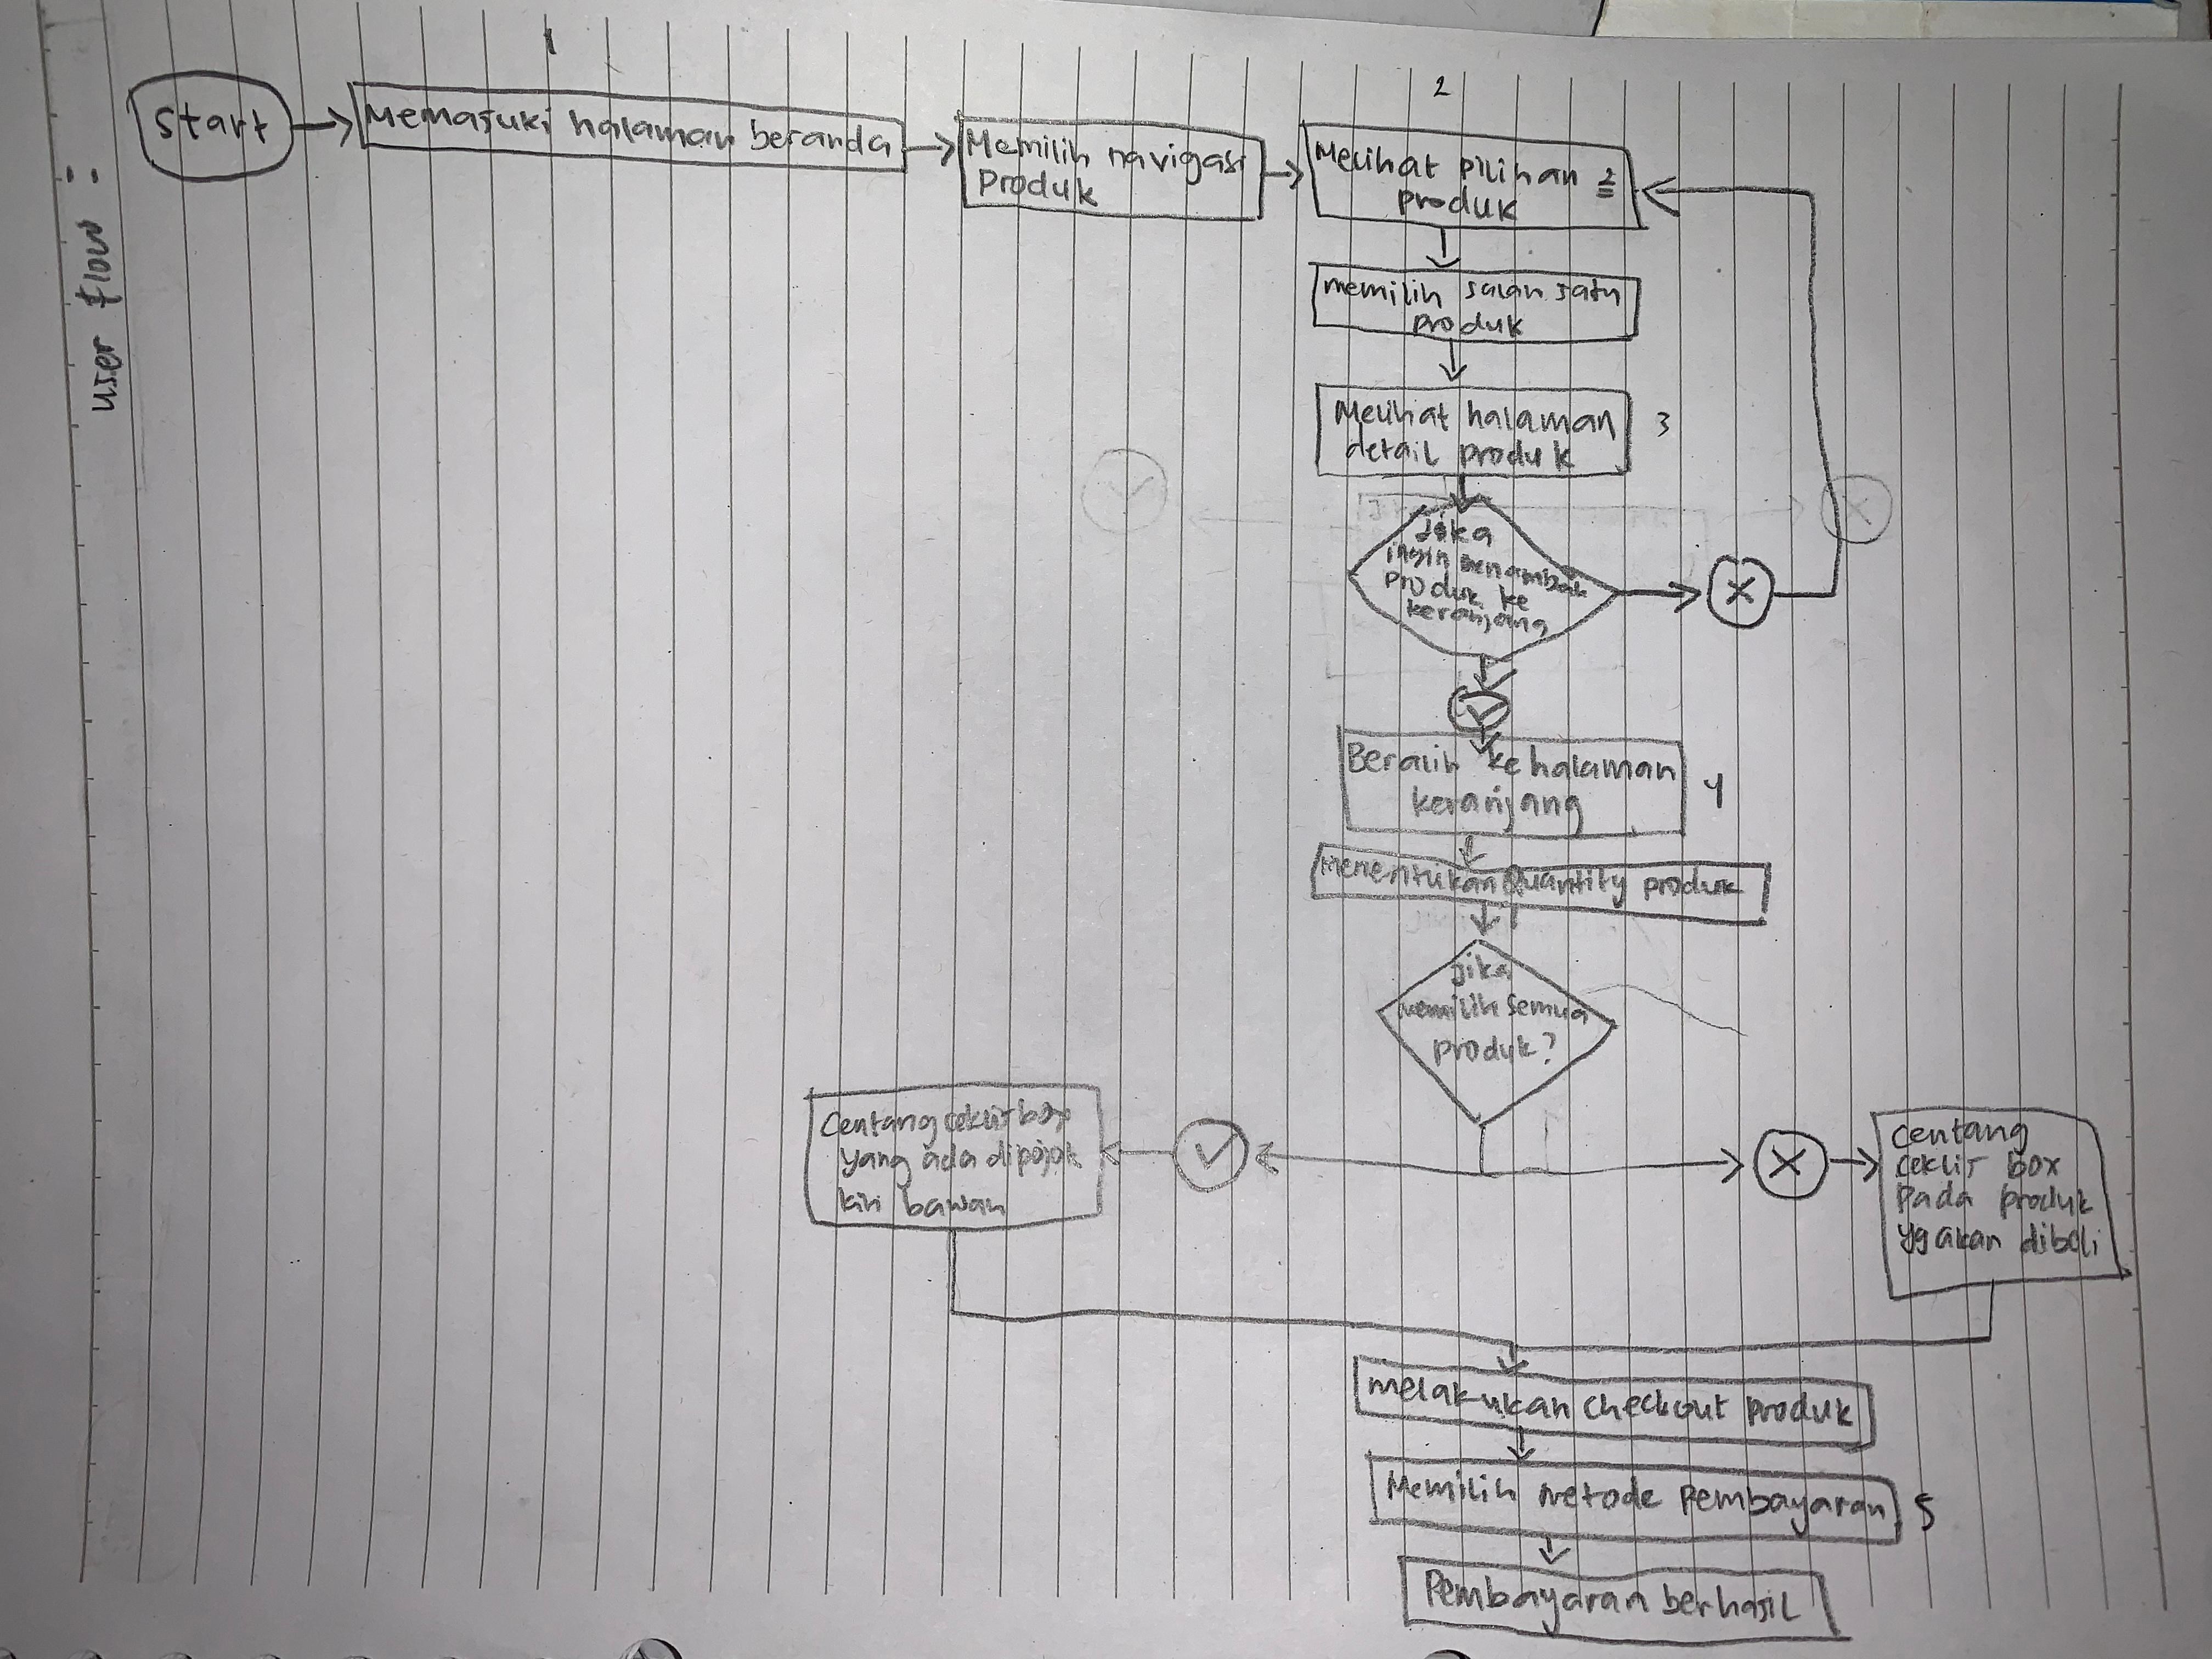 user flow :
1
start
Memasuki halaman beranda
Memilih navigasi
produk
2
Melihat pilihan 2
produk
memilih salah satu
produk
Melihat halaman
detail produk
3
Jika
ingin menambah
produk ke
keranjang
X
Beralih ke halaman
keranjang
4
Menentukan Quantity produk
jika
memilih semua
produk?
Centang ceklis box
yang ada dipojok
kiri bawah
X
Centang
ceklis box
Pada produk
yg akan dibeli
melakukan checkout produk
Memilih metode pembayaran
5
Pembayaran berhasil